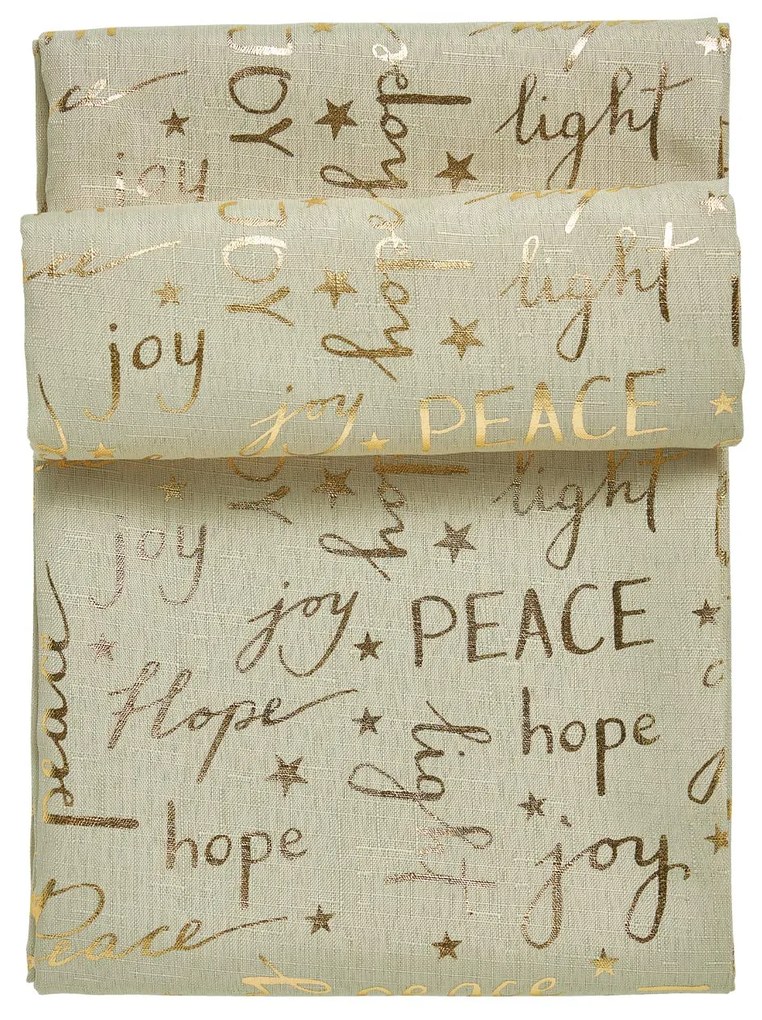 JOY
light
joy
JOY
light
joy
joy
PEACE
JOY
light
joy
joy
PEACE
Hope
hope
light
peace
hope
joy
Peace
peace